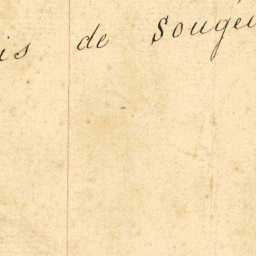 is de Sougé